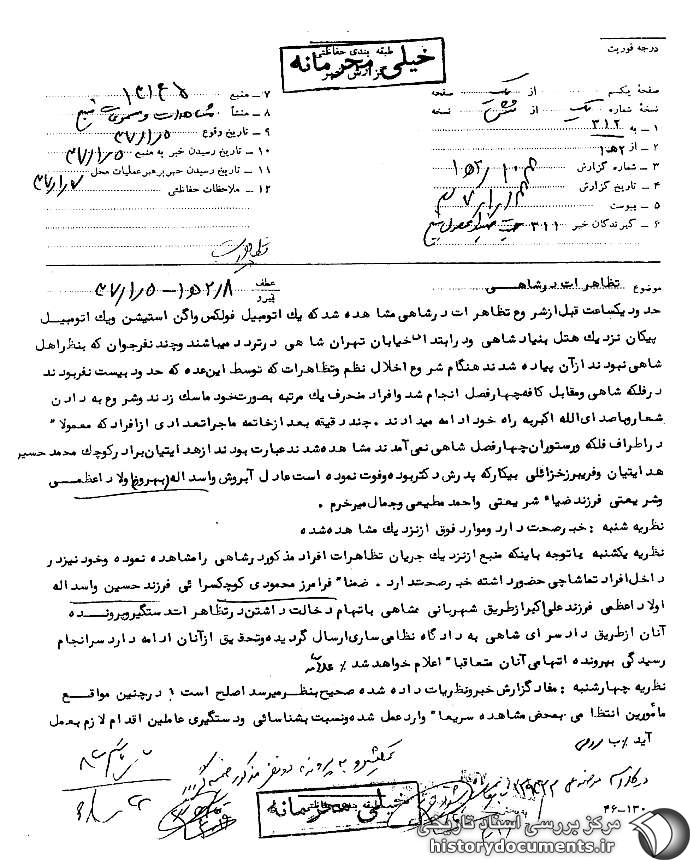 درجه فوریت
طبقه بندی حفاظتی
خیلی محرمانه
گزارش خبر
صفحه یکم از یک صفحه
نسخه شماره یک از شش نسخه
۱ ـ به ۳۱۲
۲ ـ از ۱۵۲
۳ ـ شماره گزارش
۴ ـ تاریخ گزارش
۵ ـ پیوست
۶ ـ گیرندگان خبر ۳۱۱
۷ ـ منبع
۸ ـ منشأ
۹ ـ تاریخ وقوع ۳۷/۱/۵
۱۰ ـ تاریخ رسیدن خبر به منبع ۳۷/۱/۵
۱۱ ـ تاریخ رسیدن خبر برهبر عملیات محل ۳۷/۱/۷
۱۲ ـ ملاحظات حفاظتی
موضوع تظاهرات در شاهی
عطف پیرو ۱۵۲/۸ – ۳۷/۱/۵
حدود یکساعت قبل از شروع تظاهرات در شاهی مشاهده شد که یک اتومبیل فولکس واگن استیشن ویک اتومبیل
پیکان نزدیک هتل بنیاد شاهی ودر ابتدا خیابان تهران شاهی درتردد میباشند وچند نفر جوان که بنظر اهل
شاهی نبودند از آن پیاده شدند هنگام شروع اخلال نظم وتظاهرات که توسط این عده که حدود بیست نفر بودند
در فلکه شاهی ومقابل کافه چهارفصل انجام شد وافراد منحرف یک مرتبه بصورت خود ماسک زدند وشروع به دادن
شعار وباصدای الله اکبر به راه خود ادامه میدادند . چند دقیقه بعد از خاتمه ماجرا تعدادی از افراد که معمولا"
در اطراف فلکه ورستوران چهارفصل شاهی نمی آمدند مشاهده شدند عبارت بودند از هدایتیان برادر کوچک محمد حسین
هدایتیان وفریبرز خزائلی بیکار که پدرش دکتر بوده وفوت نموده است عادل آبروش واسداله (بهروز) اولاد اعظمی
وشریعتی فرزند ضیاء شریعتی واحمد مطیعی وجمال میرخرم .
نظریه شنبه : خبر صحت دارد وموارد فوق از نزدیک مشاهده شده
نظریه یکشنبه باتوجه باینکه منبع از نزدیک جریان تظاهرات افراد مذکور در شاهی را مشاهده نموده وخود نیز در
داخل افراد تماشاچی حضور داشته خبر صحت دارد . ضمنا" فرامرز محمودی کوچکسرائی فرزند حسین واسداله
اولاد اعظمی فرزند علی اکبر از طریق شهربانی شاهی باتهام دخالت داشتن در تظاهرات دستگیر وپرونده
آنان از طریق دادسرای شاهی به دادگاه نظامی ساری ارسال گردیده وتحقیق از آنان ادامه دارد سرانجام
رسیدگی بپرونده اتهامی آنان متعاقبا" اعلام خواهد شد
نظریه چهارشنبه : مفاد گزارش خبر ونظریات داده شده صحیح بنظر میرسد اصلح است در چنین مواقع
مأمورین انتظامی بمحض مشاهده سریعا" وارد عمل شده ونسبت بشناسائی ودستگیری عاملین اقدام لازم بعمل
آید
خیلی محرمانه
۴۶–۱۳۰
مرکز بررسی اسناد تاریخی
historydocuments.ir